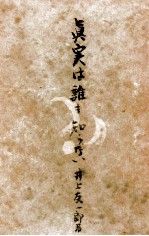 眞実は誰も知らない 井上友一郎